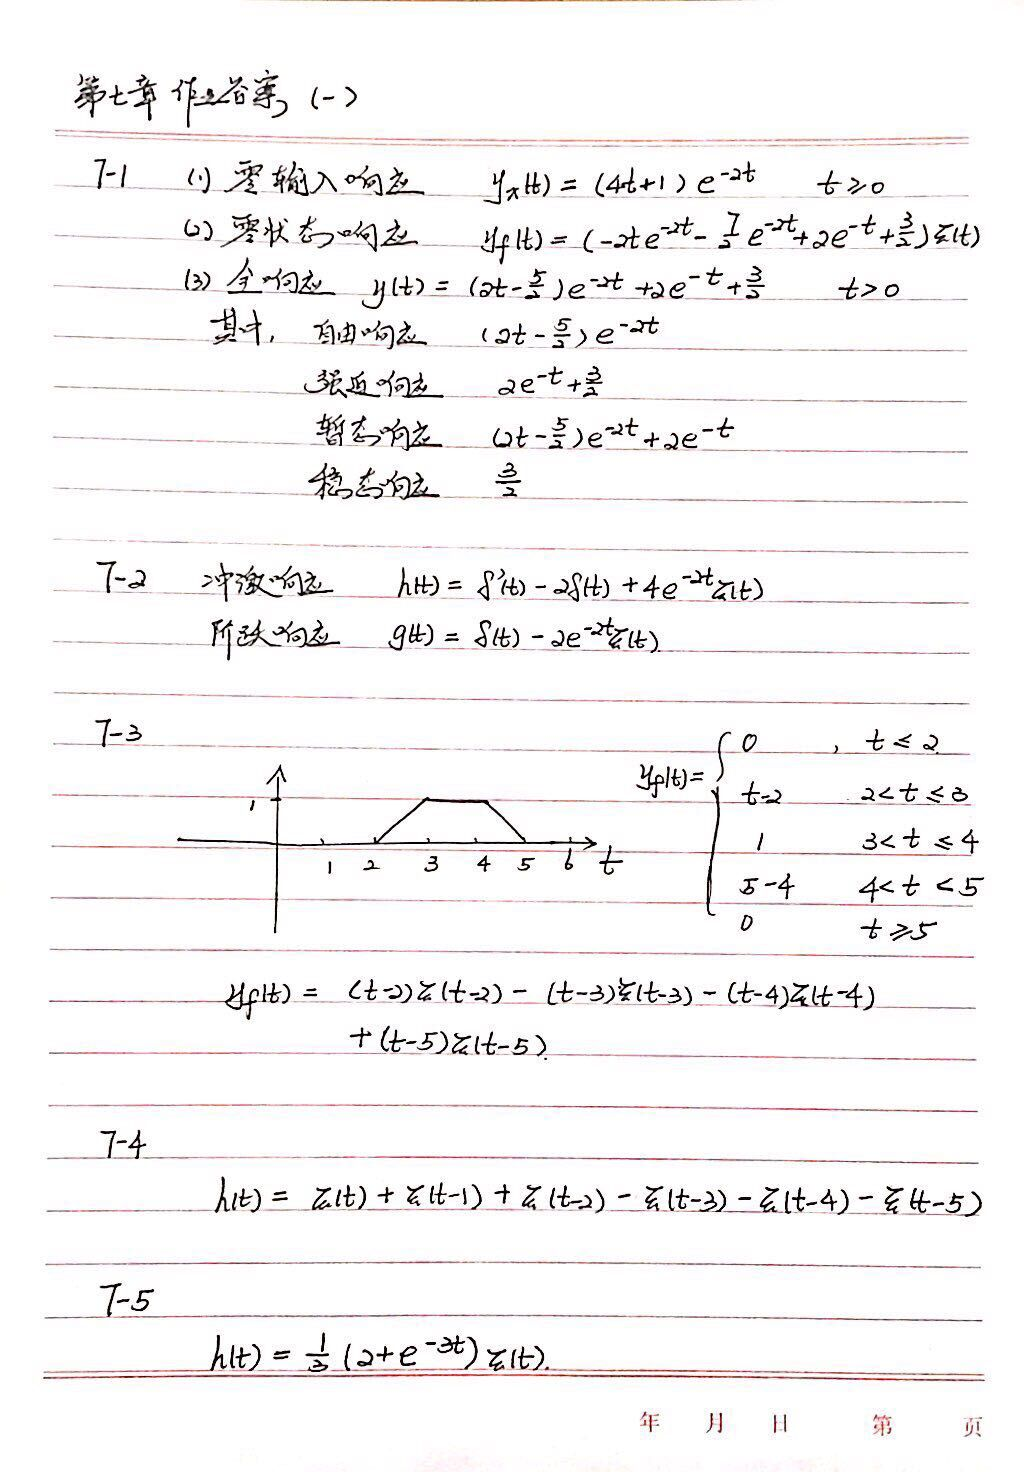 第七章 作业答案 (一)
7-1 (1) 零输入响应 yx(t) = (4t+1) e^{-2t} t≥0
(2) 零状态响应 yf(t) = (-2te^{-2t} - 7/2 e^{-2t} + 2e^{-t} + 3/2) ε(t)
(3) 全响应 y(t) = (2t - 5/2) e^{-2t} + 2e^{-t} + 3/2 t>0
其中, 自由响应 (2t - 5/2) e^{-2t}
强迫响应 2e^{-t} + 3/2
暂态响应 (2t - 5/2) e^{-2t} + 2e^{-t}
稳态响应 3/2
7-2 冲激响应 h(t) = δ'(t) - 2δ(t) + 4e^{-2t} ε(t)
阶跃响应 g(t) = δ(t) - 2e^{-2t} ε(t)
7-3
1
1 2 3 4 5 6 t
yf(t) = { 0 , t ≤ 2
t-2 2 < t ≤ 3
1 3 < t ≤ 4
5-4 4 < t < 5
0 t ≥ 5
yf(t) = (t-2) ε(t-2) - (t-3) ε(t-3) - (t-4) ε(t-4)
+ (t-5) ε(t-5).
7-4
h(t) = ε(t) + ε(t-1) + ε(t-2) - ε(t-3) - ε(t-4) - ε(t-5)
7-5
h(t) = 1/3 (2+e^{-3t}) ε(t).
年 月 日 第 页